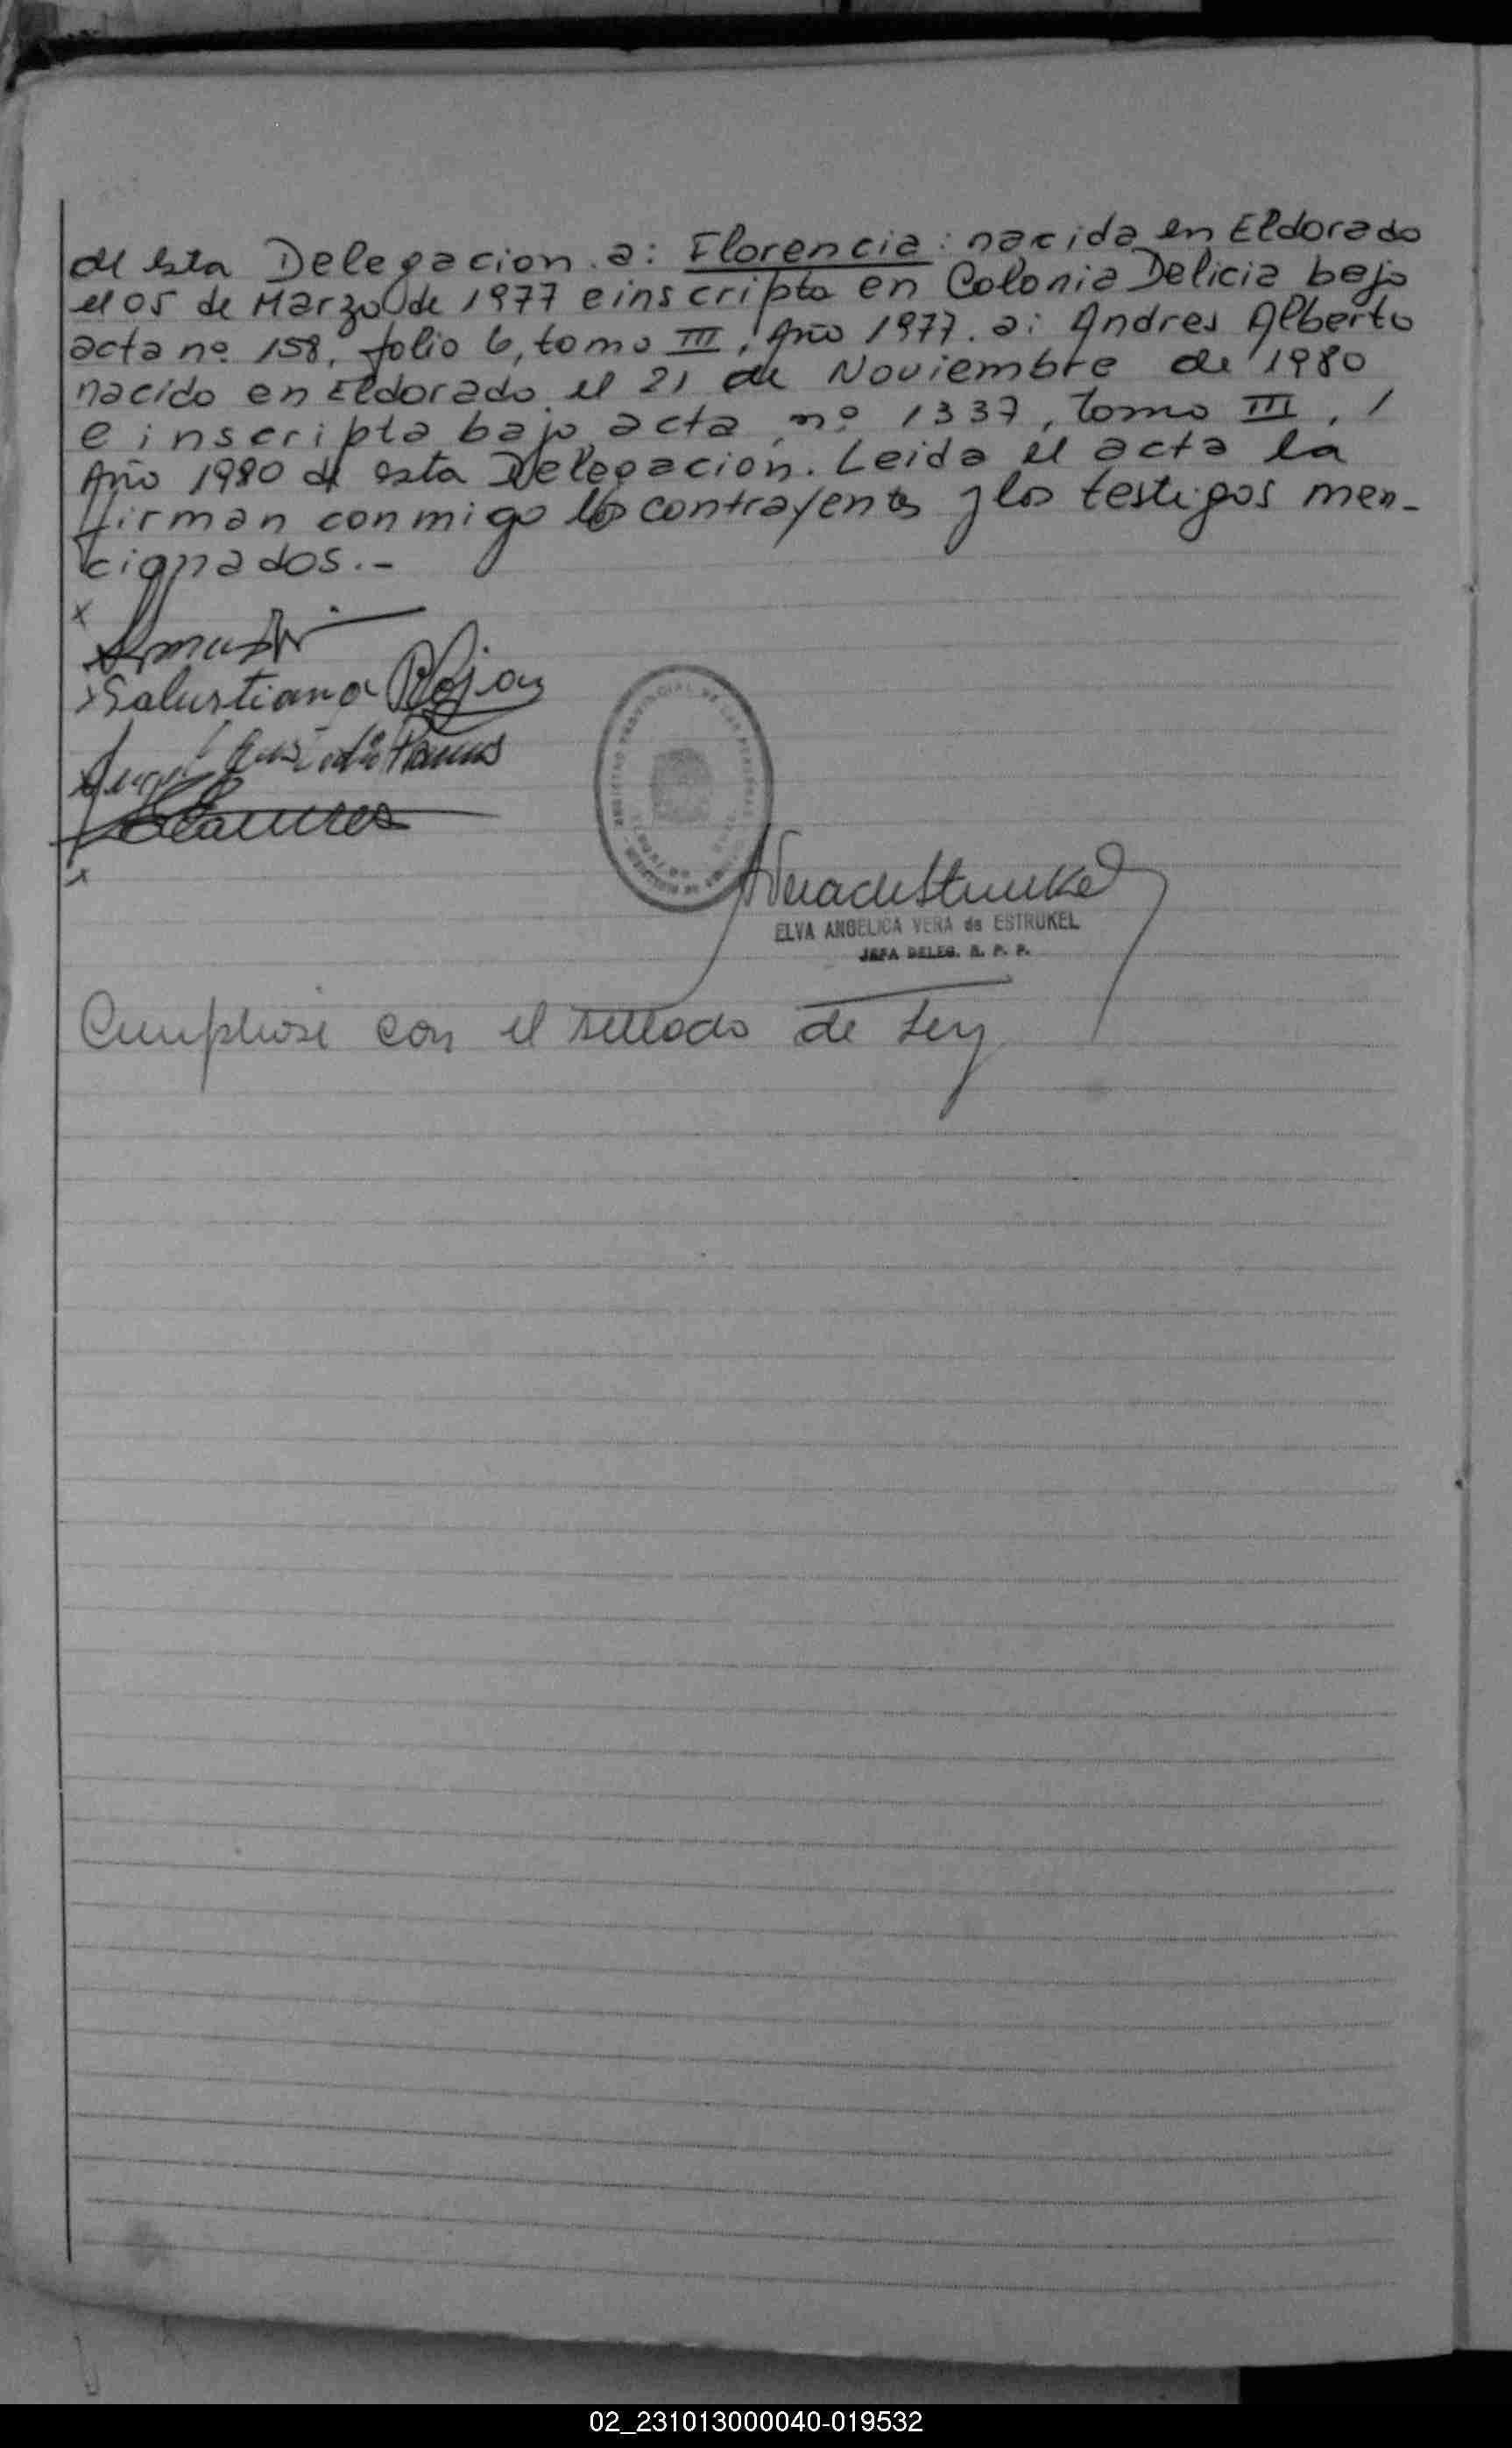 de esta Delegacion. a: Florencia: nacida en Eldorado
el 05 de Marzo de 1977 e inscripta en Colonia Delicia bajo
acta nº 158, folio 6, tomo III, Año 1977. a: Andres Alberto
nacido en Eldorado el 21 de Noviembre de 1980
e inscripta bajo acta nº 1337, tomo III, /
Año 1980 de esta Delegacion. Leida el acta la
firman conmigo los contrayentes y los testigos men-
cionados.-
x
Salustiana Rojas
x
ELVA ANGELICA VERA de ESTRUKEL
JEFA DELEG. R. P. P.
Cumpliose con el sellado de Ley
02_231013000040-019532